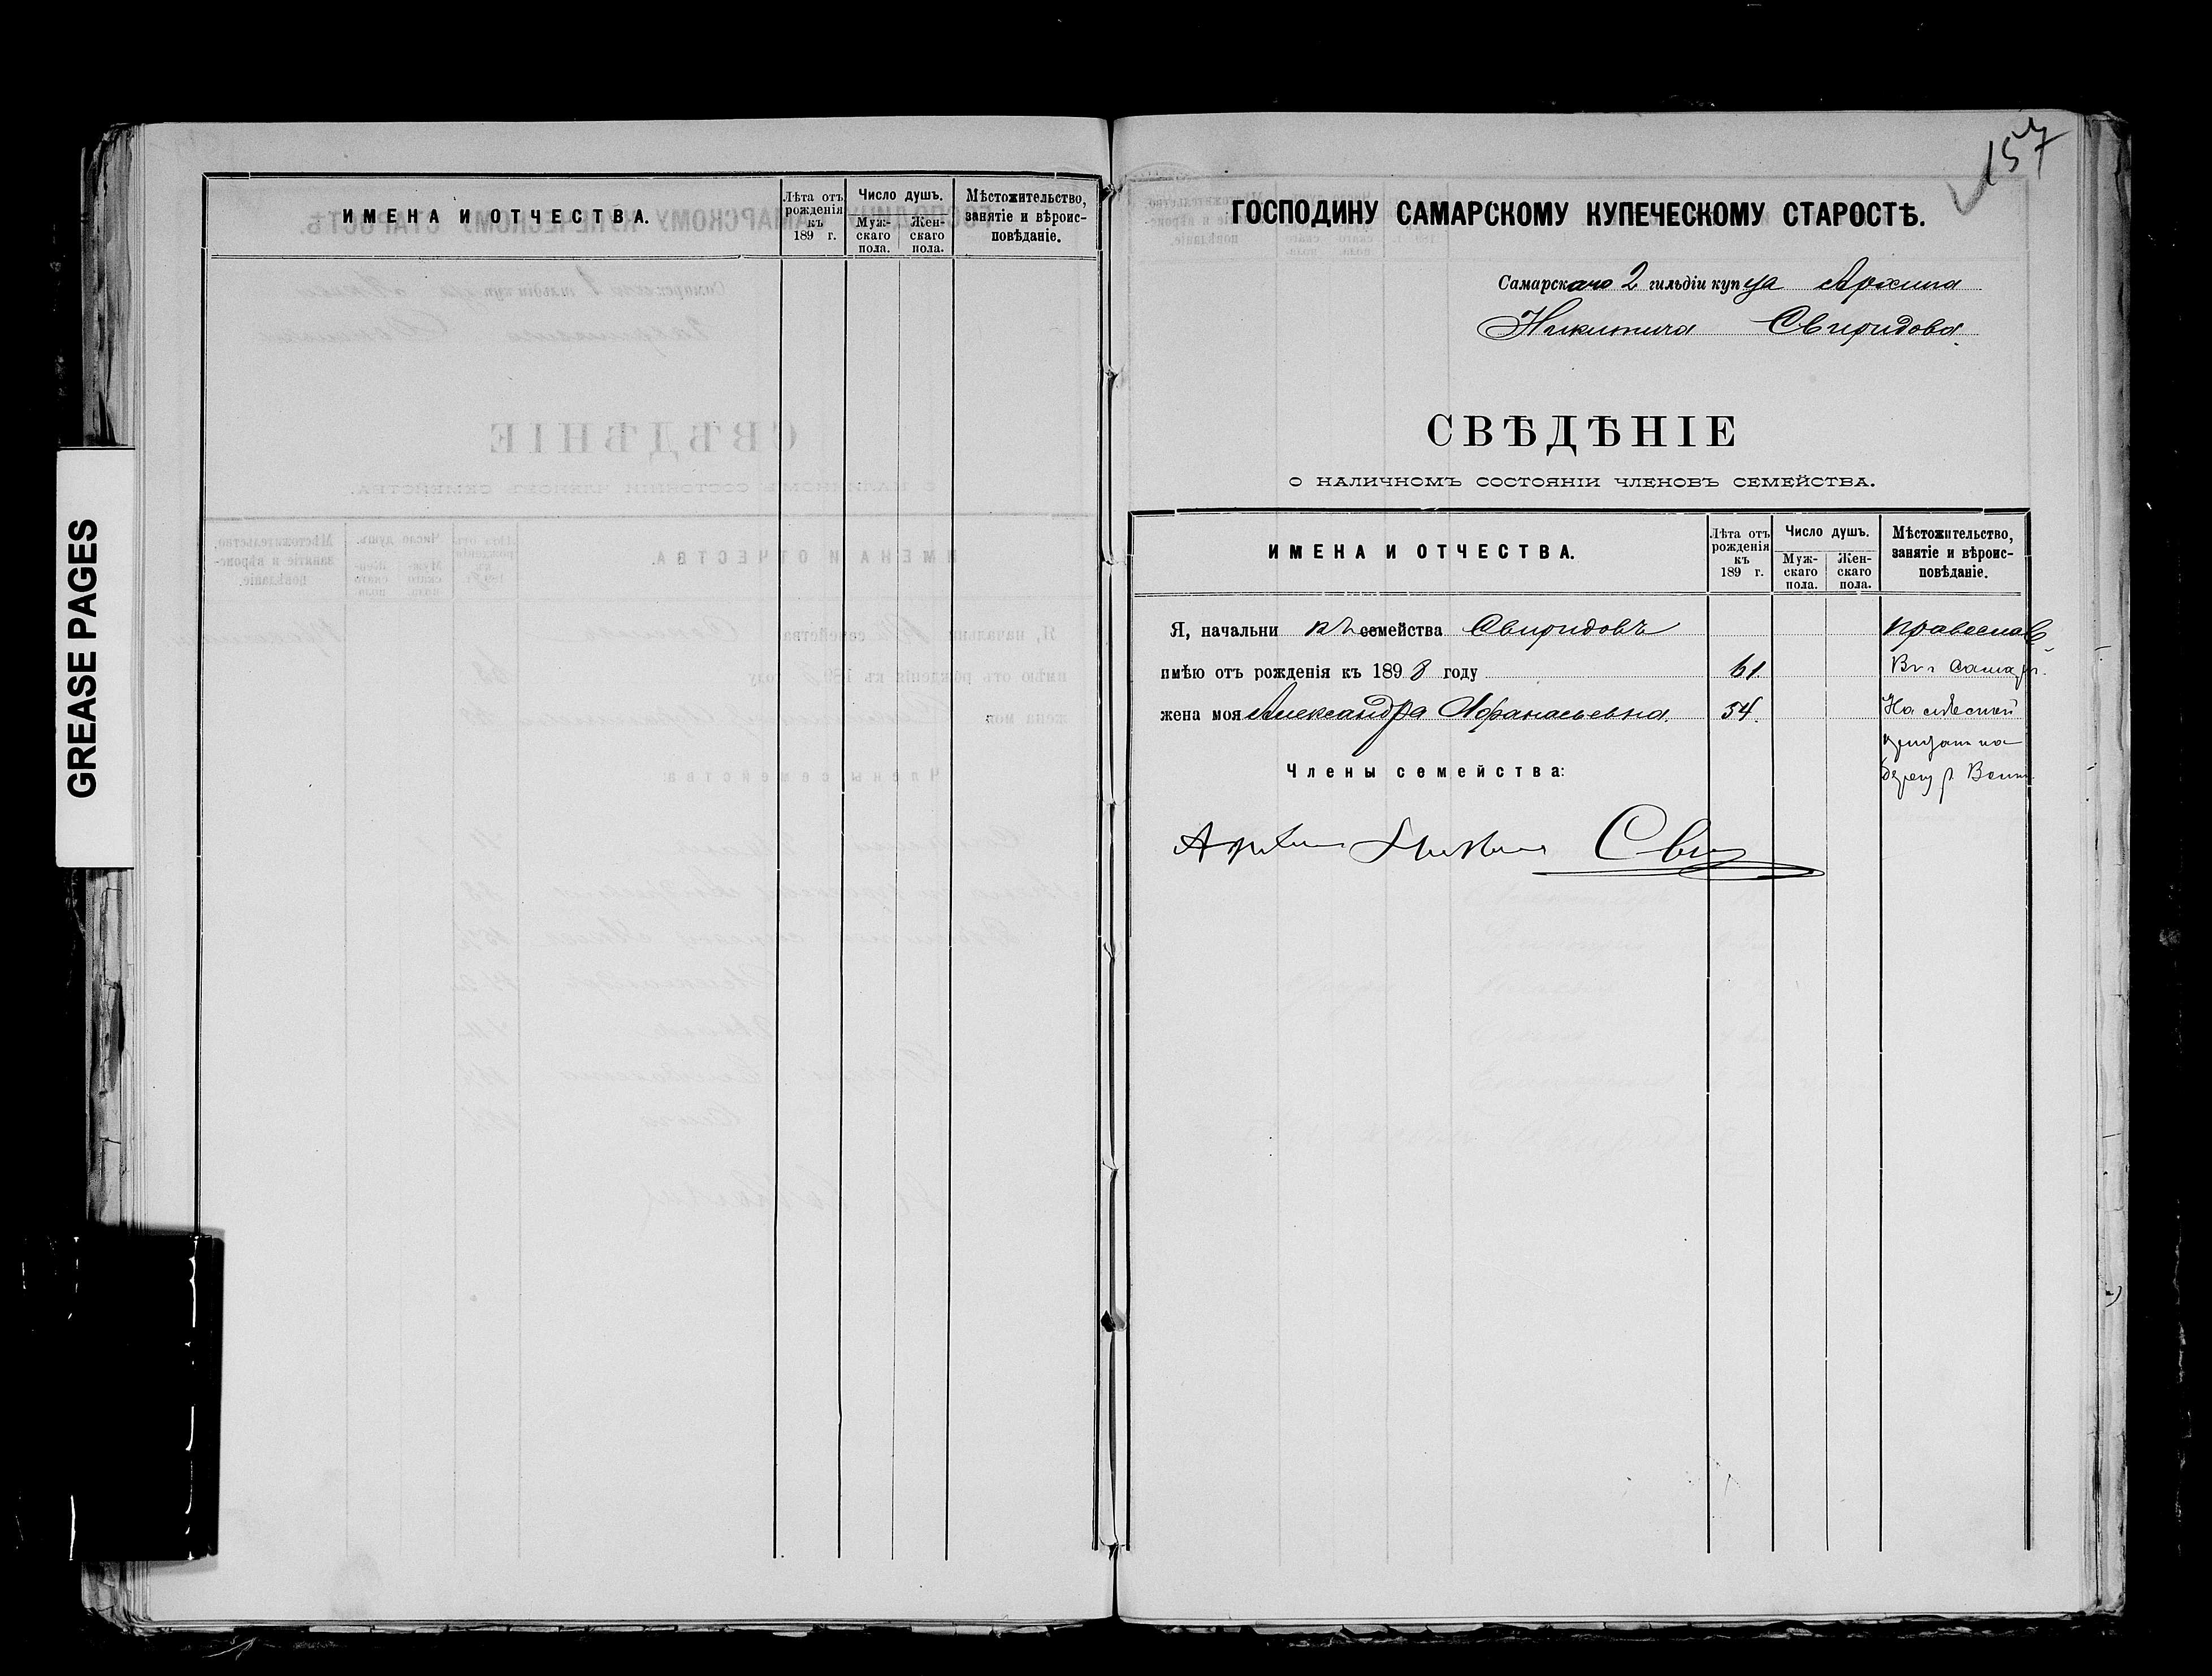 GREASE PAGES
ИМЕНА И ОТЧЕСТВА.
Лѣта отъ рожденія къ 189 г.
Число душъ.
Муж- скаго пола.
Жен- скаго пола.
Мѣстожительство, занятіе и вѣроис- повѣданіе.
157
ГОСПОДИНУ САМАРСКОМУ КУПЕЧЕСКОМУ СТАРОСТѢ.
Самарскаго 2 гильдіи купца Архипа
Никитича Свиридова.
СВѢДѢНІЕ
О НАЛИЧНОМЪ СОСТОЯНІИ ЧЛЕНОВЪ СЕМЕЙСТВА.
ИМЕНА И ОТЧЕСТВА.
Лѣта отъ рожденія къ 189 г.
Число душъ.
Муж- скаго пола.
Жен- скаго пола.
Мѣстожительство, занятіе и вѣроис- повѣданіе.
Я, начальникъ семейства Свиридовъ православ
имѣю отъ рожденія къ 1898 году 61 Въ г Самар.
жена моя Александра Афанасьевна. 54. На
Члены семейства:
Архип Свир